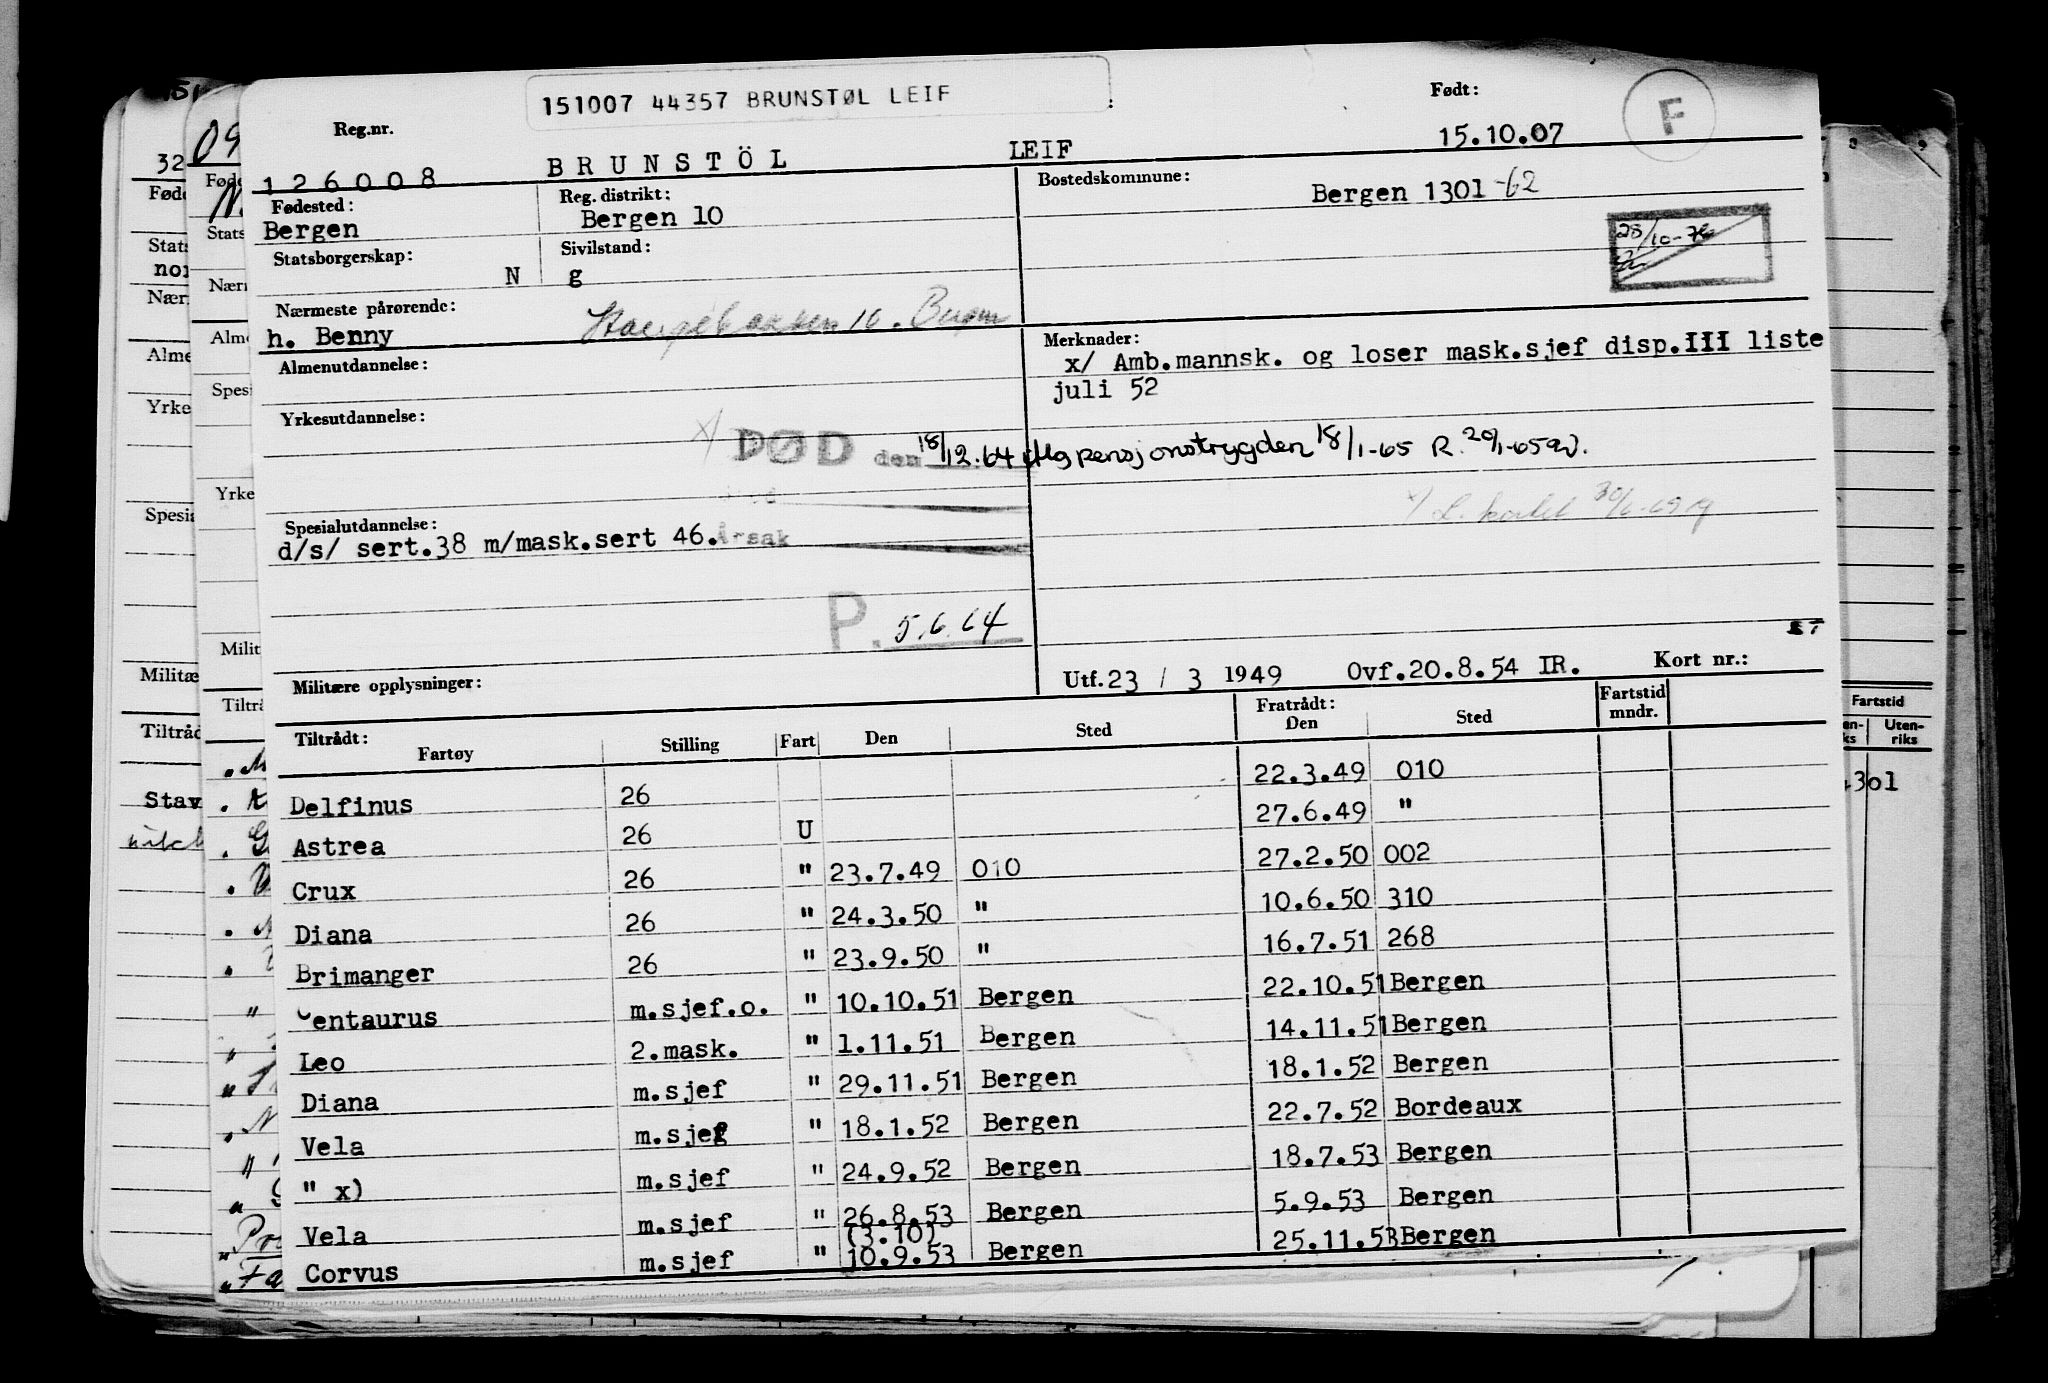 151007 44357 BRUNSTØL LEIF
Født:
F
Reg.nr.
126008 BRUNSTÖL LEIF 15.10.07
Fødested: Reg. distrikt: Bostedskommune:
Bergen Bergen 10 Bergen 1301-62
Statsborgerskap: Sivilstand:
N g
28/10-76
Nærmeste pårørende:
h. Benny 10. Bergen
Merknader:
x/ Amb.mannsk. og loser mask.sjef disp.III liste
juli 52
Almenutdannelse:
Yrkesutdannelse:
x/ DØD den 18/12.64 pensjonstrygden 18/1-65 R. 20/1-65
Spesialutdannelse:
d/s/ sert.38 m/mask.sert 46. Årsak
P. 5.6.64
Militære opplysninger:
Utf.23 / 3 1949 Ovf.20.8.54 IR. Kort nr.:
Tiltrådt: Fratrådt: Fartstid
Fartøy Stilling Fart Den Sted Den Sted mndr.
Delfinus 26 22.3.49 010
Astrea 26 U 27.6.49 "
Crux 26 " 23.7.49 010 27.2.50 002
Diana 26 " 24.3.50 " 10.6.50 310
Brimanger 26 " 23.9.50 " 16.7.51 268
Centaurus m.sjef.o. " 10.10.51 Bergen 22.10.51 Bergen
Leo 2.mask. " 1.11.51 Bergen 14.11.51 Bergen
Diana m.sjef " 29.11.51 Bergen 18.1.52 Bergen
Vela m.sjef " 18.1.52 Bergen 22.7.52 Bordeaux
" x) m.sjef " 24.9.52 Bergen 18.7.53 Bergen
Vela m.sjef " 26.8.53 Bergen 5.9.53 Bergen
(3.10)
Corvus m.sjef " 10.9.53 Bergen 25.11.53 Bergen
32
09
Stats
nor
Nær
Alme
Yrke
Spesia
Militæ
Tiltråd
Stav
Fartstid
Uten-
riks